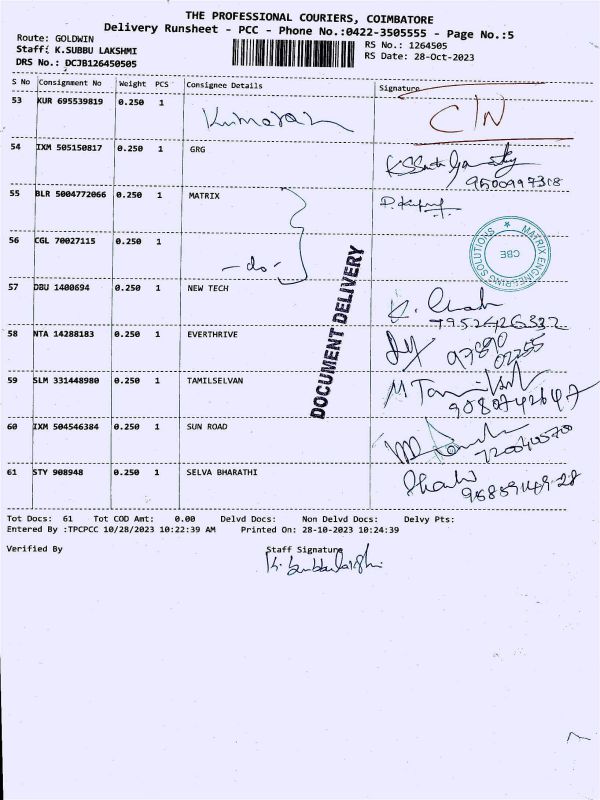 THE PROFESSIONAL COURIERS, COIMBATORE
Delivery Runsheet - PCC - Phone No.:0422-3505555 - Page No.:5
Route: GOLDWIN
RS No.: 1264505
Staff: K.SUBBU LAKSHMI
RS Date: 28-Oct-2023
DRS No.: DCJB126450505
S No Consignment No Weight PCS Consignee Details Signature
53 KUR 695539819 0.250 1 Kumaran C/N
54 IXM 505150817 0.250 1 GRG
9500997318
55 BLR 5004772066 0.250 1 MATRIX
MATRIX ENGINEERING SOLUTIONS ★ CBE
56 CGL 70027115 0.250 1 -do-
DOCUMENT DELIVERY
57 DBU 1400694 0.250 1 NEW TECH
58 NTA 14288183 0.250 1 EVERTHRIVE
97890
02255
59 SLM 331448980 0.250 1 TAMILSELVAN
9080742647
60 IXM 504546384 0.250 1 SUN ROAD
61 STY 908948 0.250 1 SELVA BHARATHI
Tot Docs: 61 Tot COD Amt: 0.00 Delvd Docs: Non Delvd Docs: Delvy Pts:
Entered By :TPCPCC 10/28/2023 10:22:39 AM Printed On: 28-10-2023 10:24:39
Verified By Staff Signature
K. Subbulakshmi